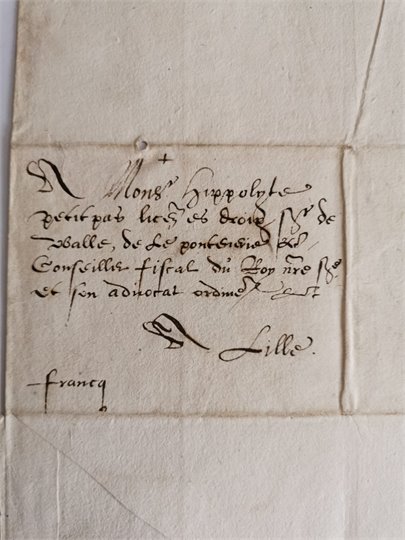 +
A Mons.r Hippolyte
petitpas licen. es droix, S.r de
Walle, de le pontenerie &c.
Conseiller fiscal du Roy n.re S.r
et son advocat ordin.re
A Lille.
francq